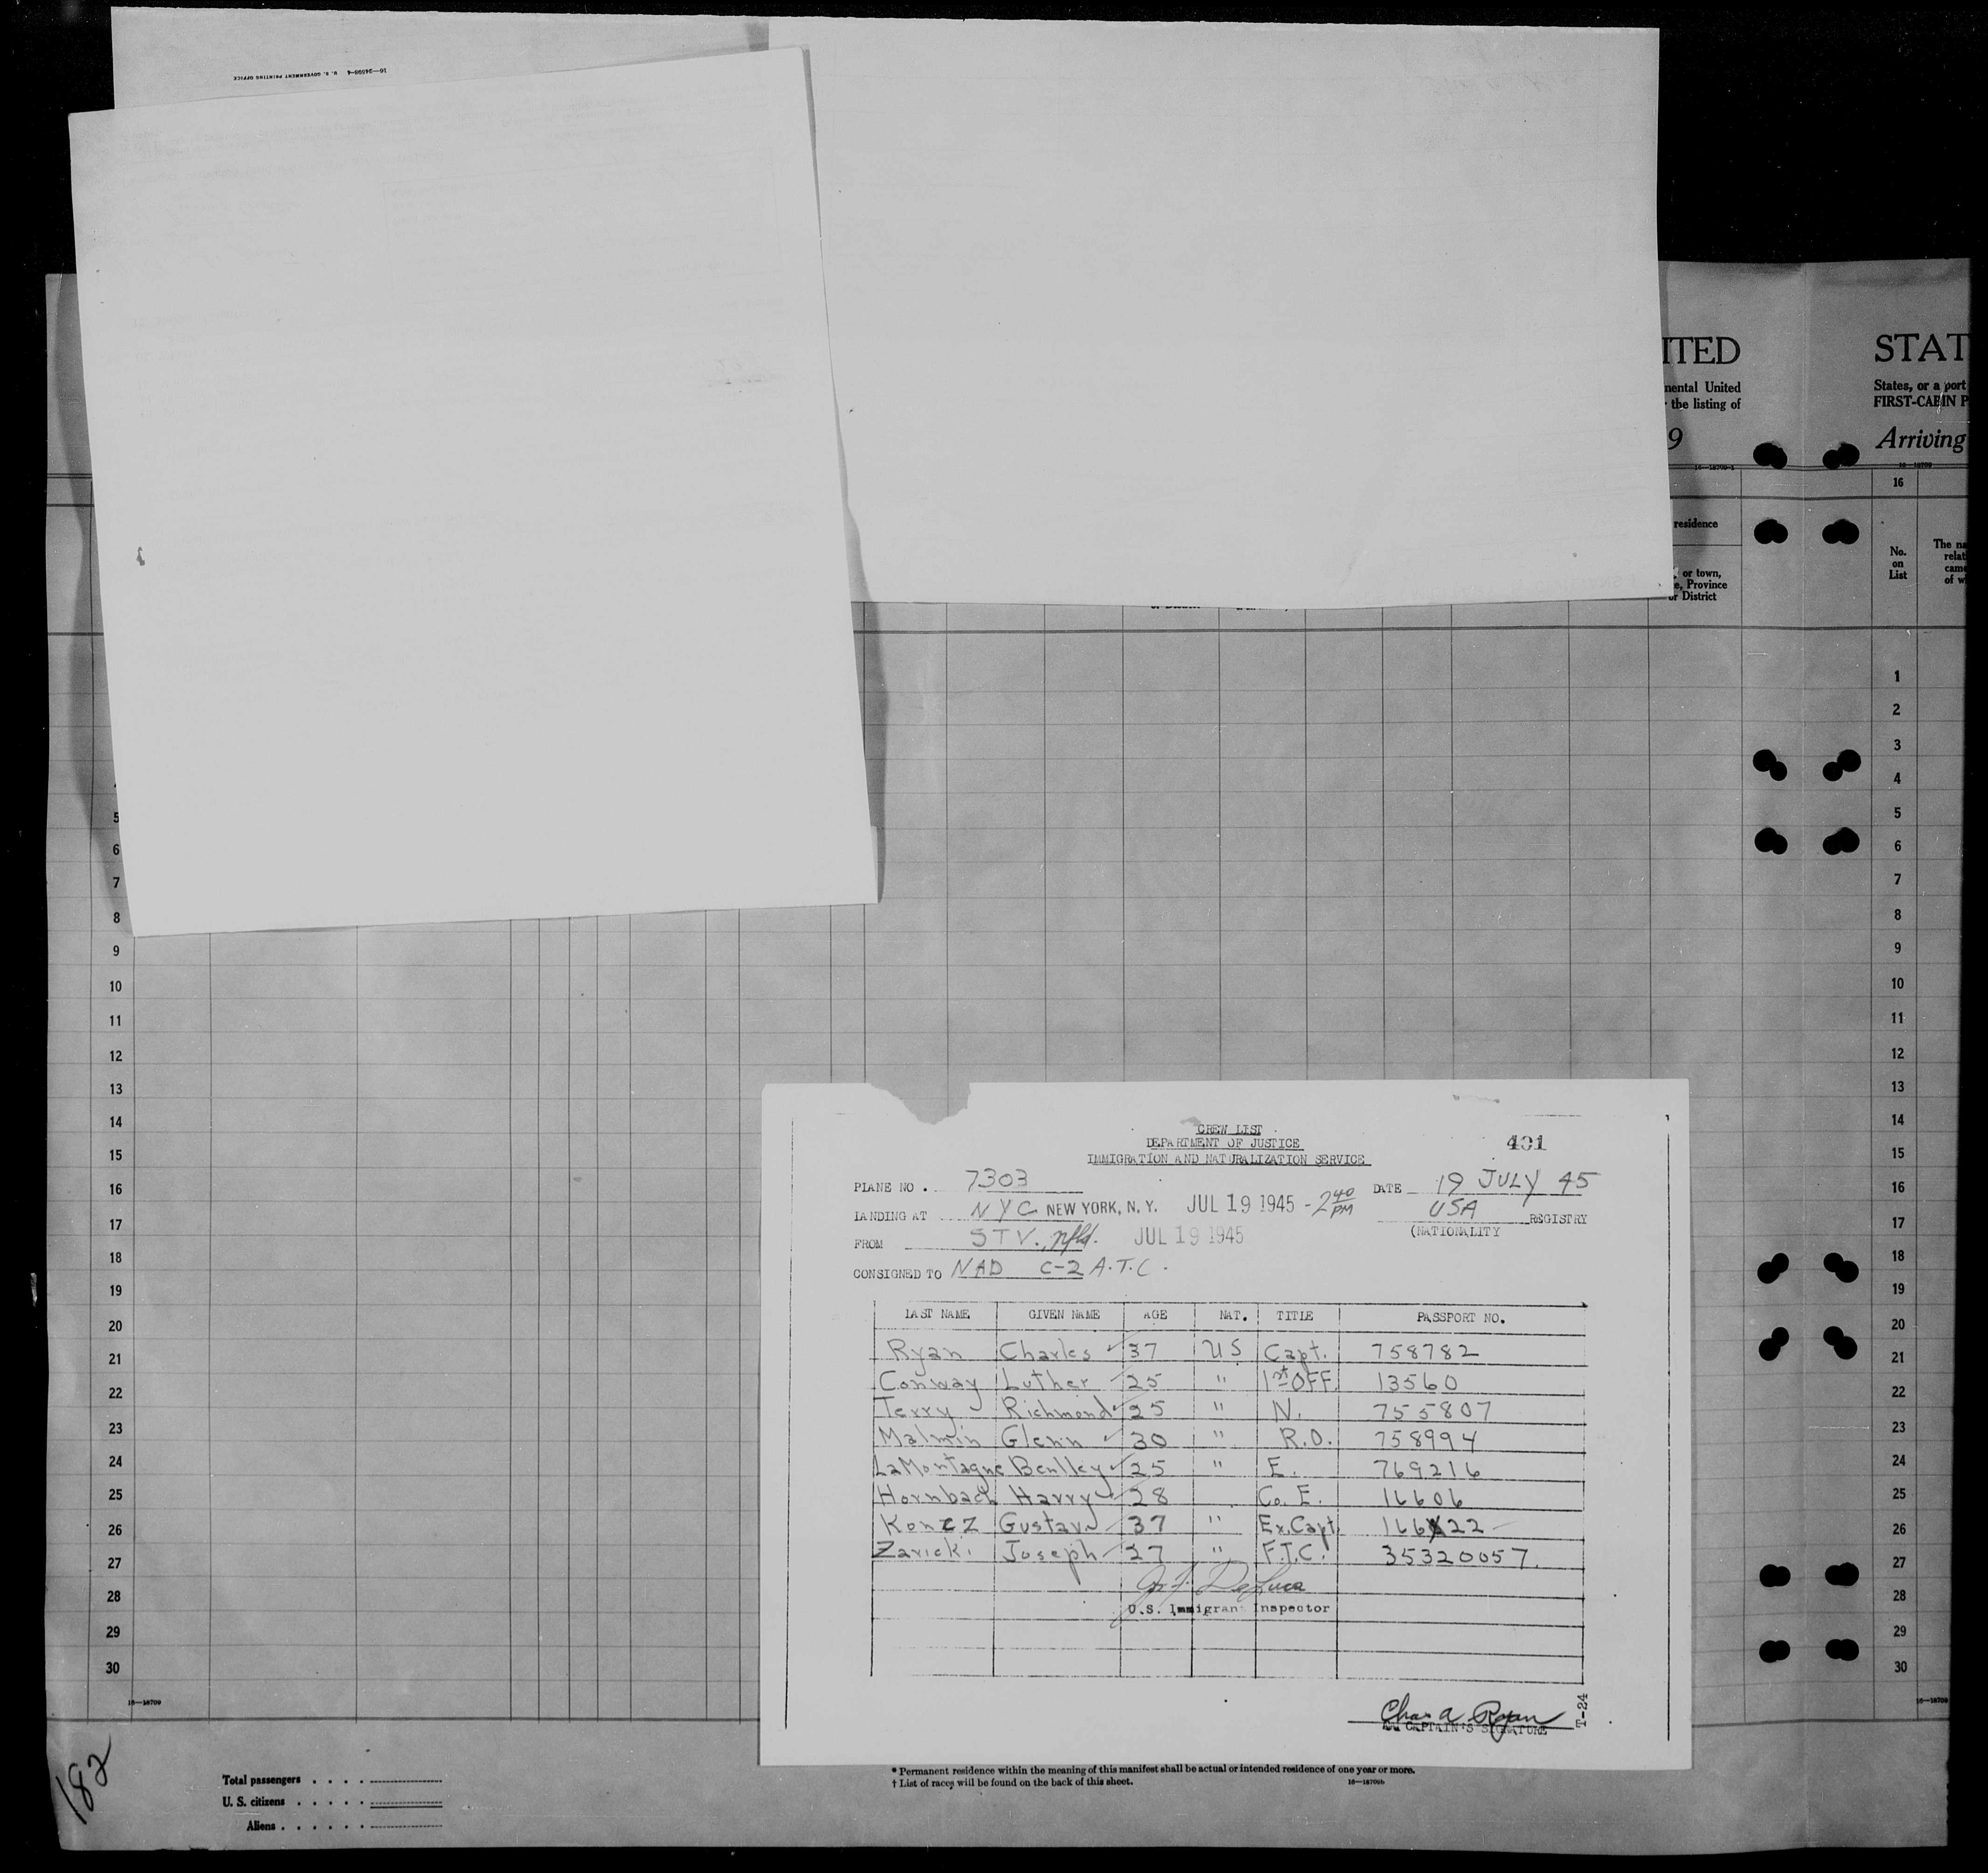 16—24598-4 U. S. GOVERNMENT PRINTING OFFICE
ITED
mental United
the listing of
9
16—18709-1
residence
or town,
e, Province
or District
STAT
States, or a port
FIRST-CABIN P
Arriving
16—18709
16
No.
on
List
The na
relat
came
of w
1
2
3
4
5
6
7
8
9
10
11
12
13
14
15
16
17
18
19
20
21
22
23
24
25
26
27
28
29
30
16—18709
5
6
7
8
9
10
11
12
13
14
15
16
17
18
19
20
21
22
23
24
25
26
27
28
29
30
16—18709
CREW LIST
DEPARTMENT OF JUSTICE
IMMIGRATION AND NATURALIZATION SERVICE
401
PLANE NO. 7303 DATE 19 JULY 45
LANDING AT NYC NEW YORK, N. Y. JUL 19 1945 - 2 40 PM USA REGISTRY
(NATIONALITY
FROM STV., Nfld. JUL 19 1945
CONSIGNED TO NAD C-2 A.T.C.
LAST NAME GIVEN NAME AGE NAT. TITLE PASSPORT NO.
Ryan Charles 37 US Capt. 758782
Conway Luther 25 " 1st OFF. 13560
Terry Richmond 25 " N. 755807
Malmin Glenn 30 " R.O. 758994
LaMontagne 25 " E. 769216
Hornbach Harry 28 Co. E. 16606
Koncz Gustav 37 " Ex. Capt. 166 22
Zavicki Joseph 27 " F.T.C. 35320057.
DeLuca
U.S. Immigrant Inspector
Chas A Ryan
CAPTAIN'S SIGNATURE
T-24
182
Total passengers
U. S. citizens
Aliens
* Permanent residence within the meaning of this manifest shall be actual or intended residence of one year or more.
† List of races will be found on the back of this sheet. 16—18709b